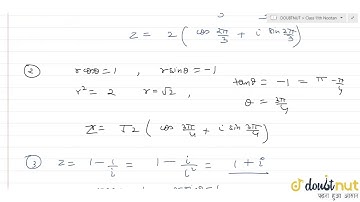 DOUBTNUT • Class 11th Nootan
z = 2 ( cos 2π/3 + i sin 2π/3 )
② r cosθ = 1 , r sinθ = -1
tanθ = -1 = π - π/4
r² = 2 r = √2
θ = 3π/4
z = √2 ( cos 3π/4 + i sin 3π/4 )
③ z = 1 - 1/i = 1 - i/i² = 1 + i
doubtnut